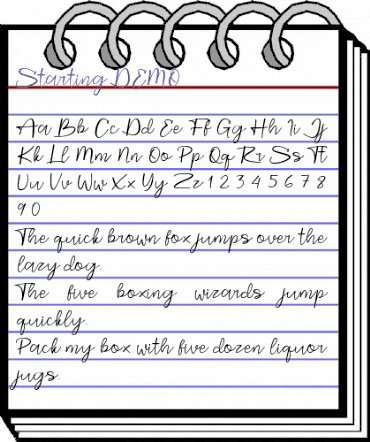 Starting DEMO
Aa Bb Cc Dd Ee Ff Gg Hh Ii Jj
Kk Ll Mm Nn Oo Pp Qq Rr Ss Tt
Uu Vv Ww Xx Yy Zz 1 2 3 4 5 6 7 8
9 0
The quick brown fox jumps over the
lazy dog.
The five boxing wizards jump
quickly.
Pack my box with five dozen liquor
jugs.